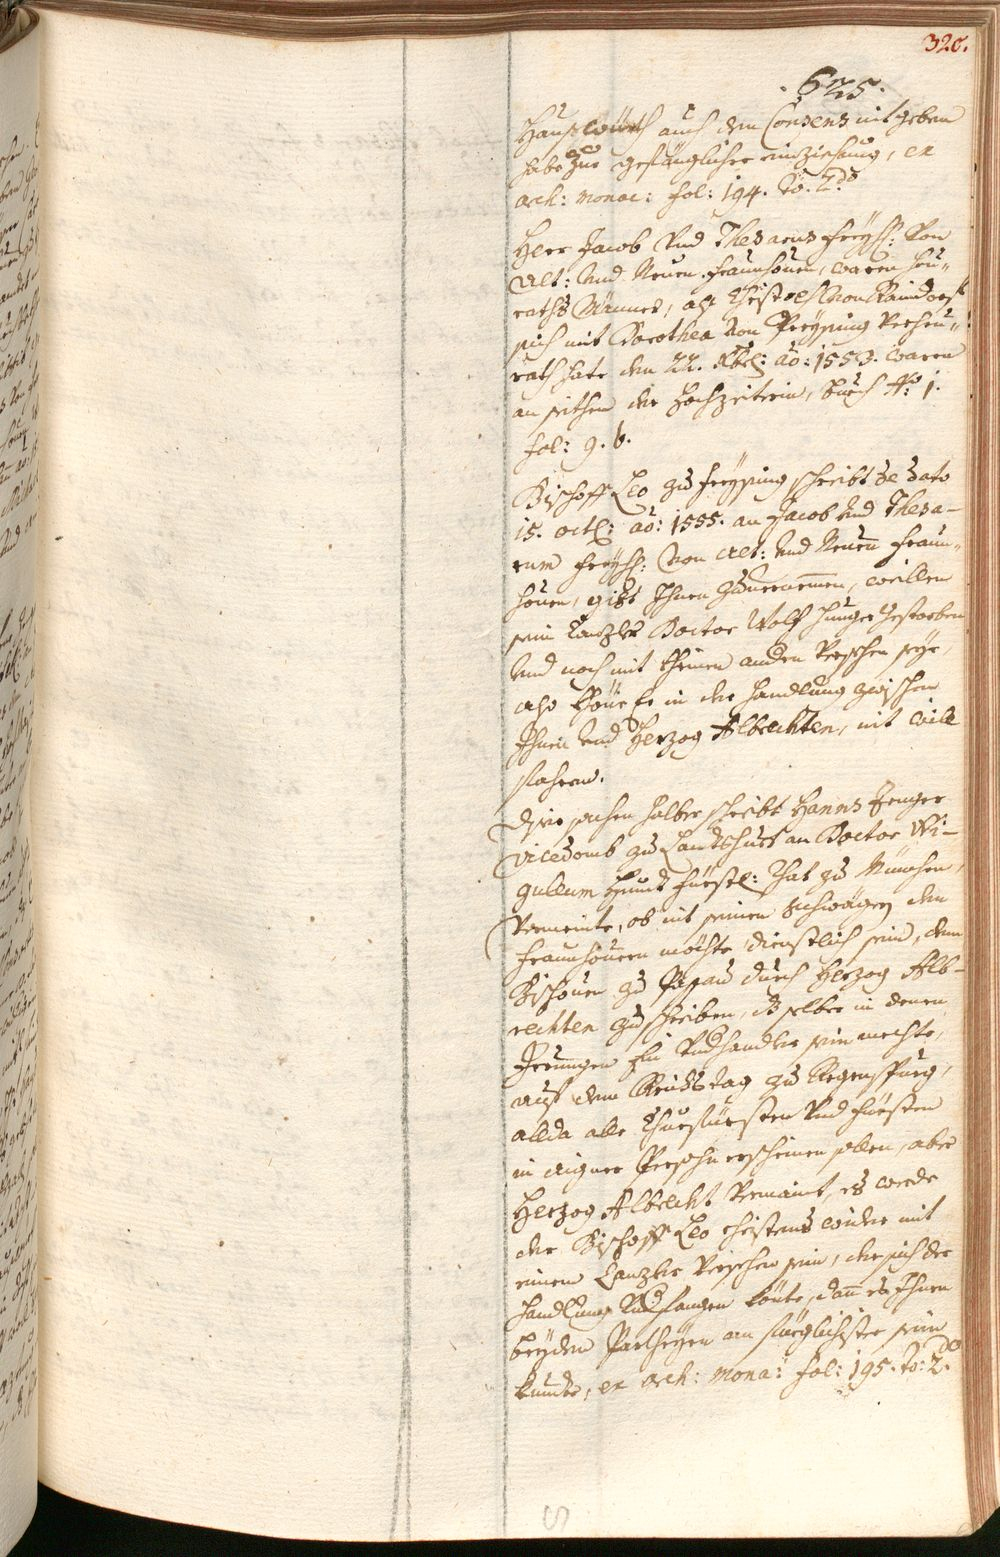 320.
. 625 .
Haußwürth auch den Consens nit geben
habe zur gefänglicher einziehung, ex
arch: monac: fol: 194. to. 2.do
Herr Jacob Vnd Thesarus Freyh: Von
Alt: Vnd Neuen Fraunhouen, waren heu„
raths Männer, alß Christoph Von Raindorf
sich mit Dorothea Von Preysing Verheu„
rath hate den 22. Xbr: ao: 1553. waren
an seithen der Hochzeiterin, buech No: 1.
fol: 9. b.
Bischoff Leo zu Freysing schreibt de dato
15. oct: ao: 1555. an Jacob Vnd Thesa-
rum Freyh: Von Alt: Vnd Neuen Fraun„
houen, gibt Ihnen zuuernemmen, weillen
sein Canzler Doctor Wolf Hunger gestorben
Vnd noch mit kheinen anden Versehen seye,
also khöne Er in der handlung zwischen
Ihnen Vnd Herzog Albrechten, nit will
fahren.
Diser sachen halber schreibt Hanns Zenger
Vicedomb zu Landtshuet an Doctor Wi-
guleum Hundt Fürstl: Rhat zu München,
Vermeinte, ob nit seinen Schwägern den
Fraunhouern möchte dienstlich sein, dem
Bischouen zu Passau durch Herzog Alb-
rechten zu schreiben, dz selber in denen
Irrungen ein Vndhandler sein mechte,
auf dem Reichstag zu Regenspurg,
allda alle Churfürsten Vnd Fürsten
in aigner Persohn erscheinen sollen, aber
Herzog Albrecht Vermaint, es werde
der Bischoff Leo ehistens wider mit
einem Canzler Versehen sein, der sich der
handlung Vndfangen könte, dann es Ihnen
beyden Partheyen am füeglichister sein
kundte, ex arch: mona: fol: 195. to: 2.do